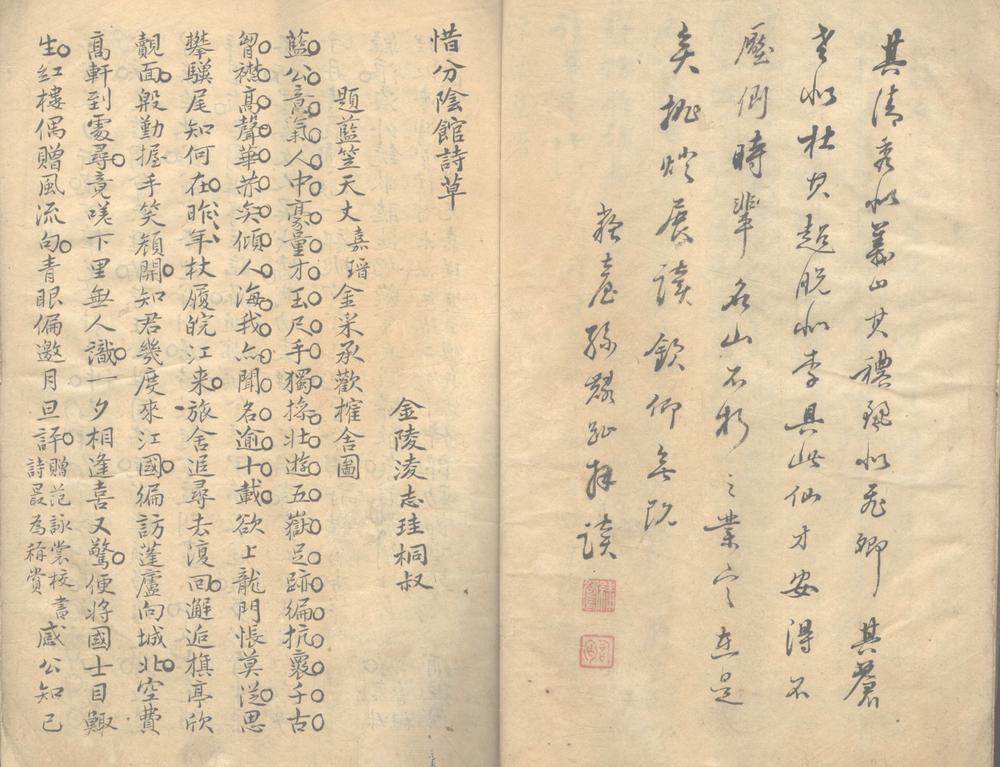 其清秀似義山其穠艷似飛卿其蒼
老似杜其超脫似李具此仙才安得不
壓倒時輩名山不朽之業定在是
矣挑燈展讀欽仰無既
蘇臺孫麟趾拜讀
惜分陰館詩草
金陵淩志珪桐叔
題藍笠天丈嘉瑨金采承歡榷舍圖
藍公意氣人中豪量才玉尺手獨操壯遊五嶽足跡徧抗褱千古
曾襟高聲華藉矣傾人海我亦聞名逾十載欲上龍門悵莫從思
攀驥尾知何在昨年杖履皖江來旅舍追尋去復回邂逅旗亭欣
覿面殷勤握手笑顏開知君幾度來江國徧訪蓬廬向城北空費
高軒到處尋竟嗟下里無人識一夕相逢喜又驚便將國士目鯫
生紅樓偶贈風流句青眼偏邀月旦評贈范詠裳校書詩最為稱賞感公知己